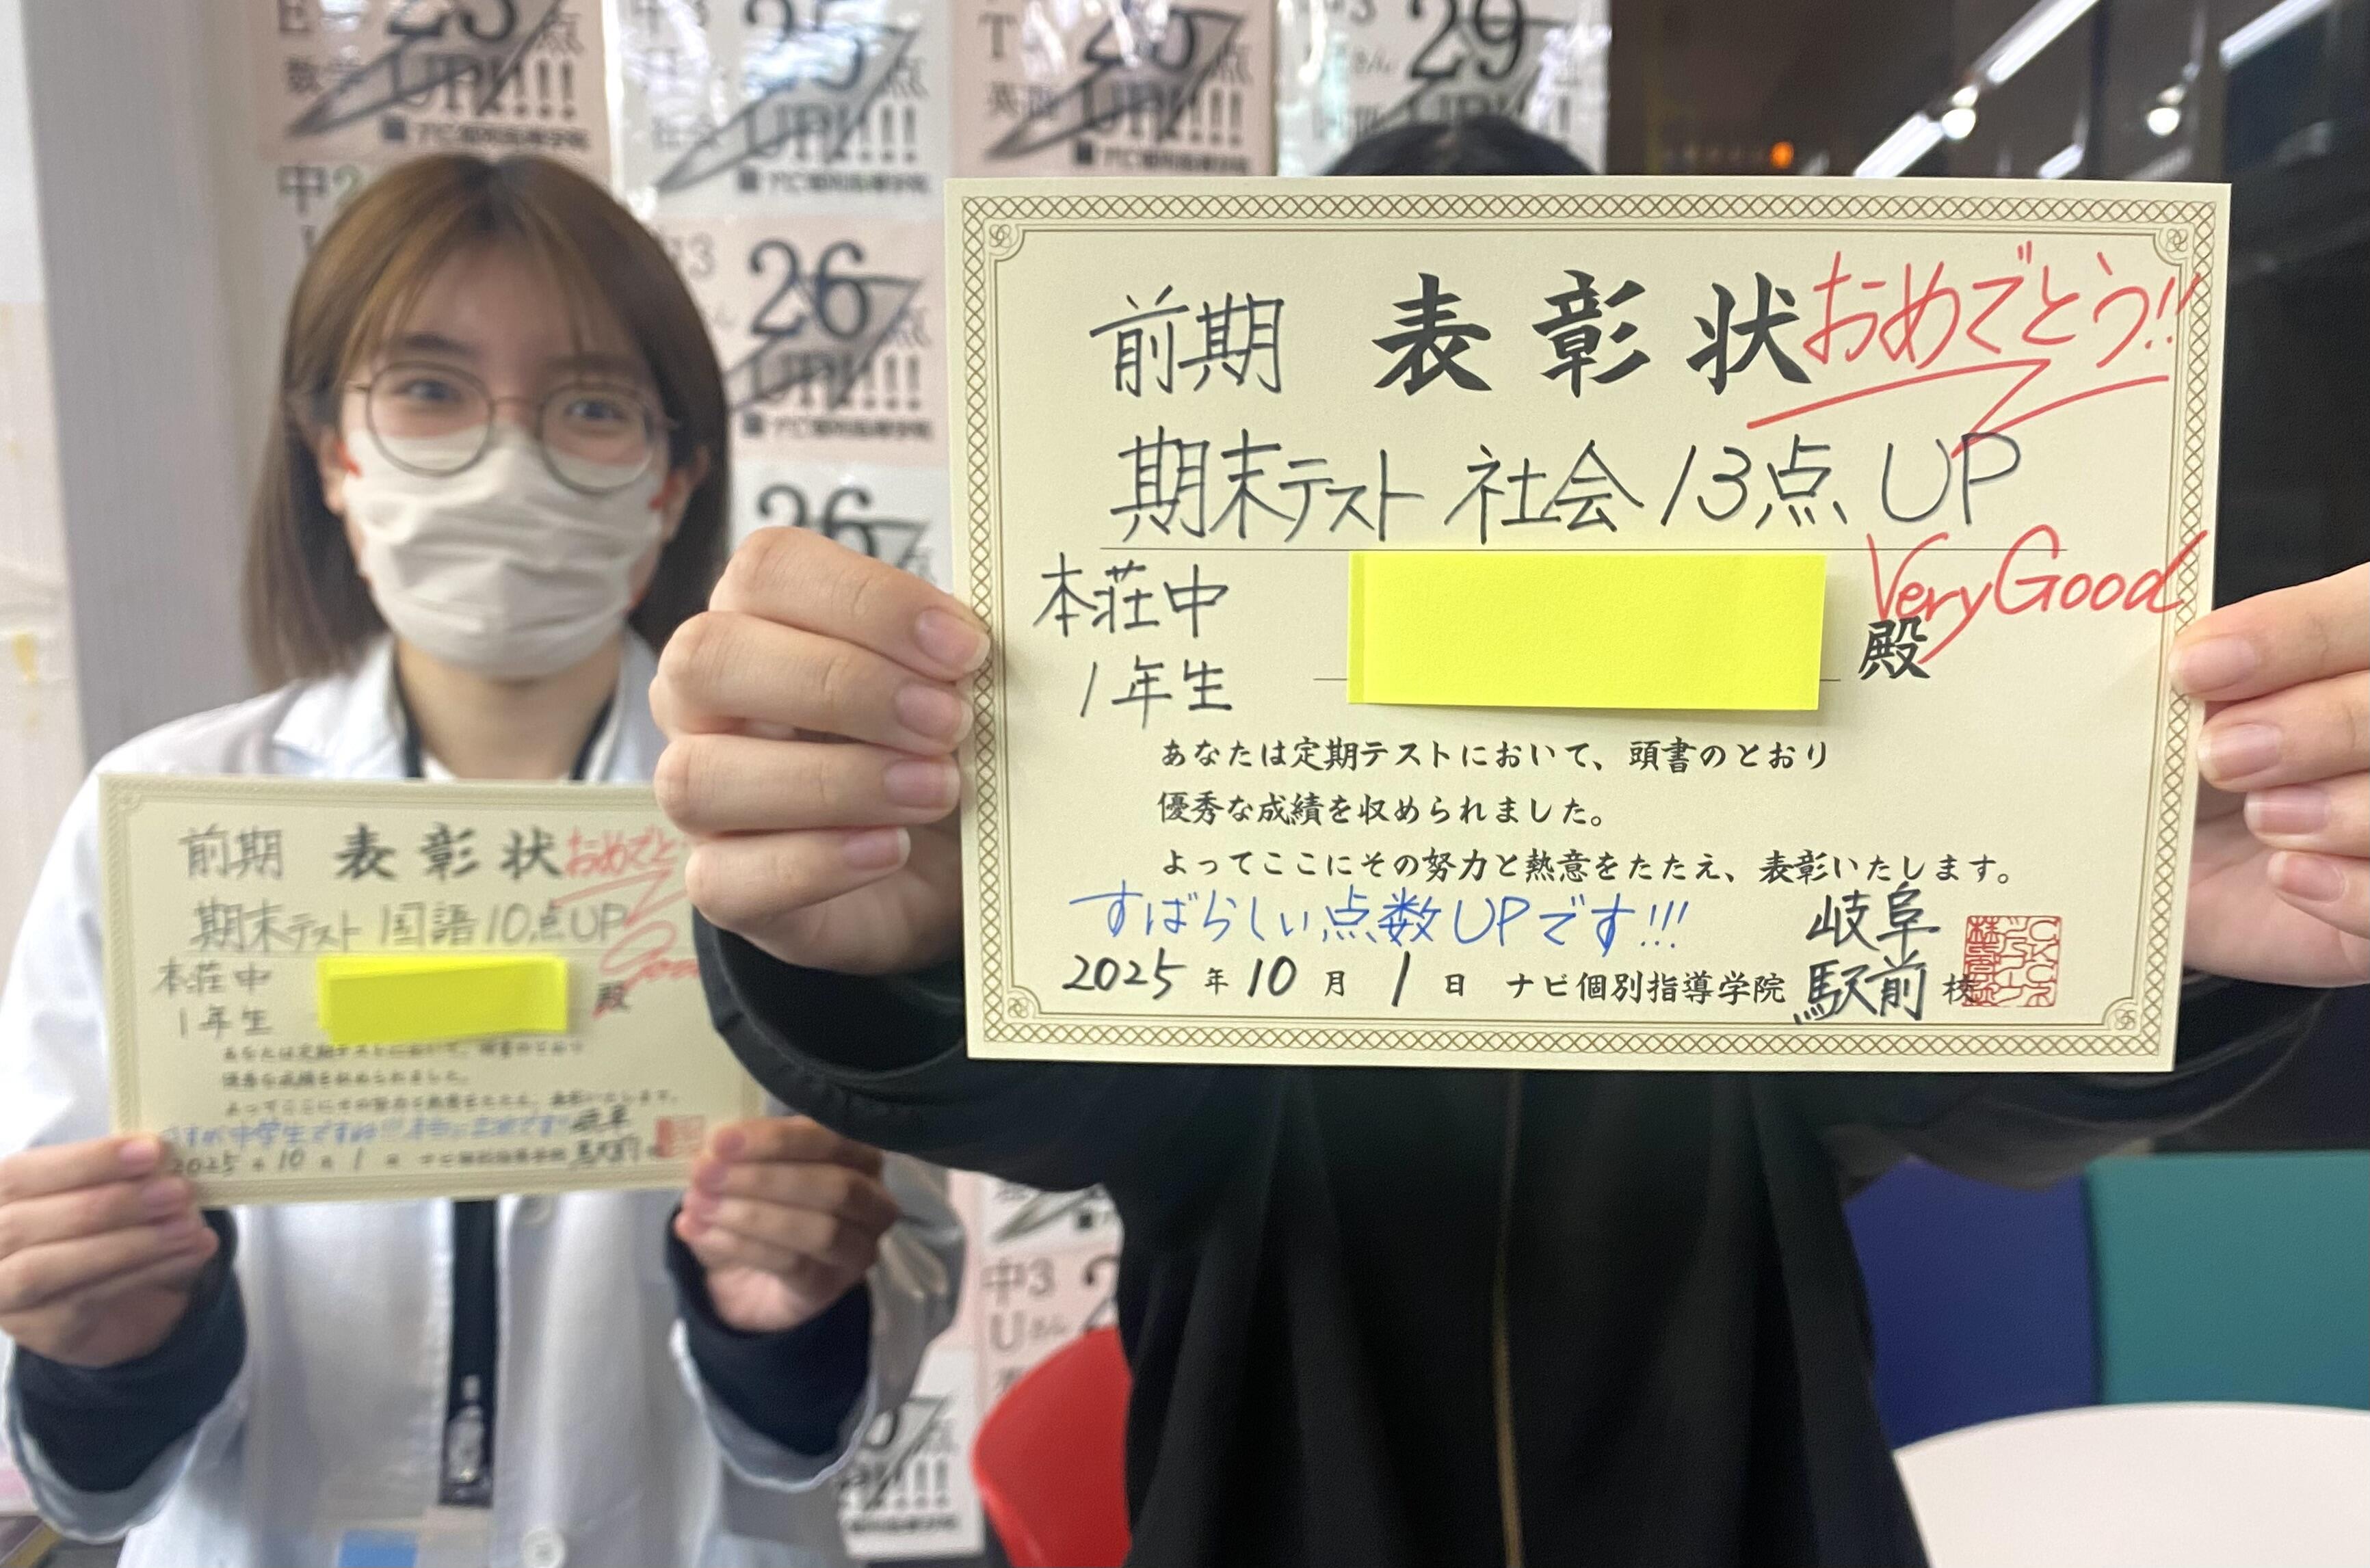 前期 表彰状 おめでとう!!
期末テスト 社会 13点 UP
Very Good
本荘中
1年生
殿
あなたは定期テストにおいて、頭書のとおり
優秀な成績を収められました。
よってここにその努力と熱意をたたえ、表彰いたします。
すばらしい点数UPです!!!
岐阜
2025年10月1日 ナビ個別指導学院 駅前校
前期 表彰状 おめでと
期末テスト 国語 10点UP
本荘中
1年生
殿
あなたは定期テストにおいて、頭書のとおり
優秀な成績を収められました。
よってここにその努力と熱意をたたえ、表彰いたします。
岐阜
2025年10月1日 ナビ個別指導学院 駅前
25点
UP!!!
社会
ナビ個別指導学院
英語
UP!!!
ナビ個別指導学院
29
UP!!!
中2
26点
UP!!!
ナビ個別指導学院
26
中3
Uさん